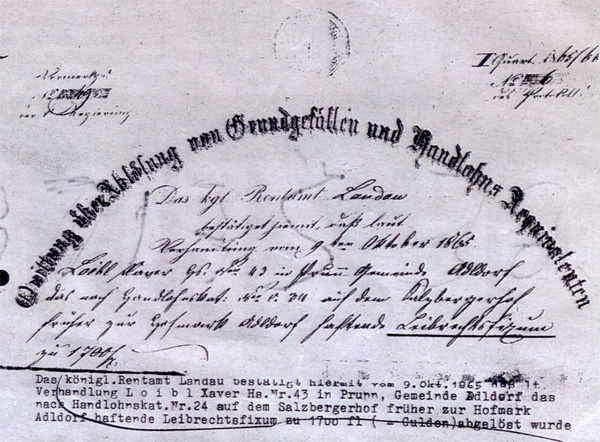 I Quart. 1865/66
Vormerkgs.
der Regierung
des Protokolls
Quittung über Ablösung von Grundgefällen und Handlohns Aequivalenten
Das kgl. Rentamt Landau
bestätiget hiemit, daß laut
Verhandlung vom 9 ten Oktober 1865
Loibl Xaver Hs. Nro 43 in Prunn Gemeinde Adldorf
das nach Handlohnskat: Nro 34 auf dem Salzbergerhof
früher zur Hofmark Adldorf haftende Leibrechtsfixum
zu 1700 f.
Das königl.Rentamt Landau bestätigt hiermit vom 9.Okt.1865 daß lt.
Verhandlung L o i b l Xaver Hs.Nr.43 in Prunn, Gemeinde Edldorf das
nach Handlohnskat.Nr.24 auf dem Salzbergerhof früher zur Hofmark
Adldorf haftende Leibrechtsfixum zu 1700 fl ( = Gulden)abgelöst wurde